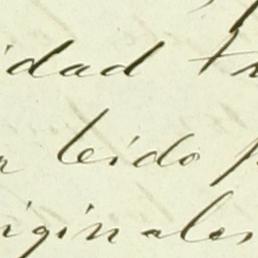 idad
leido
iginales